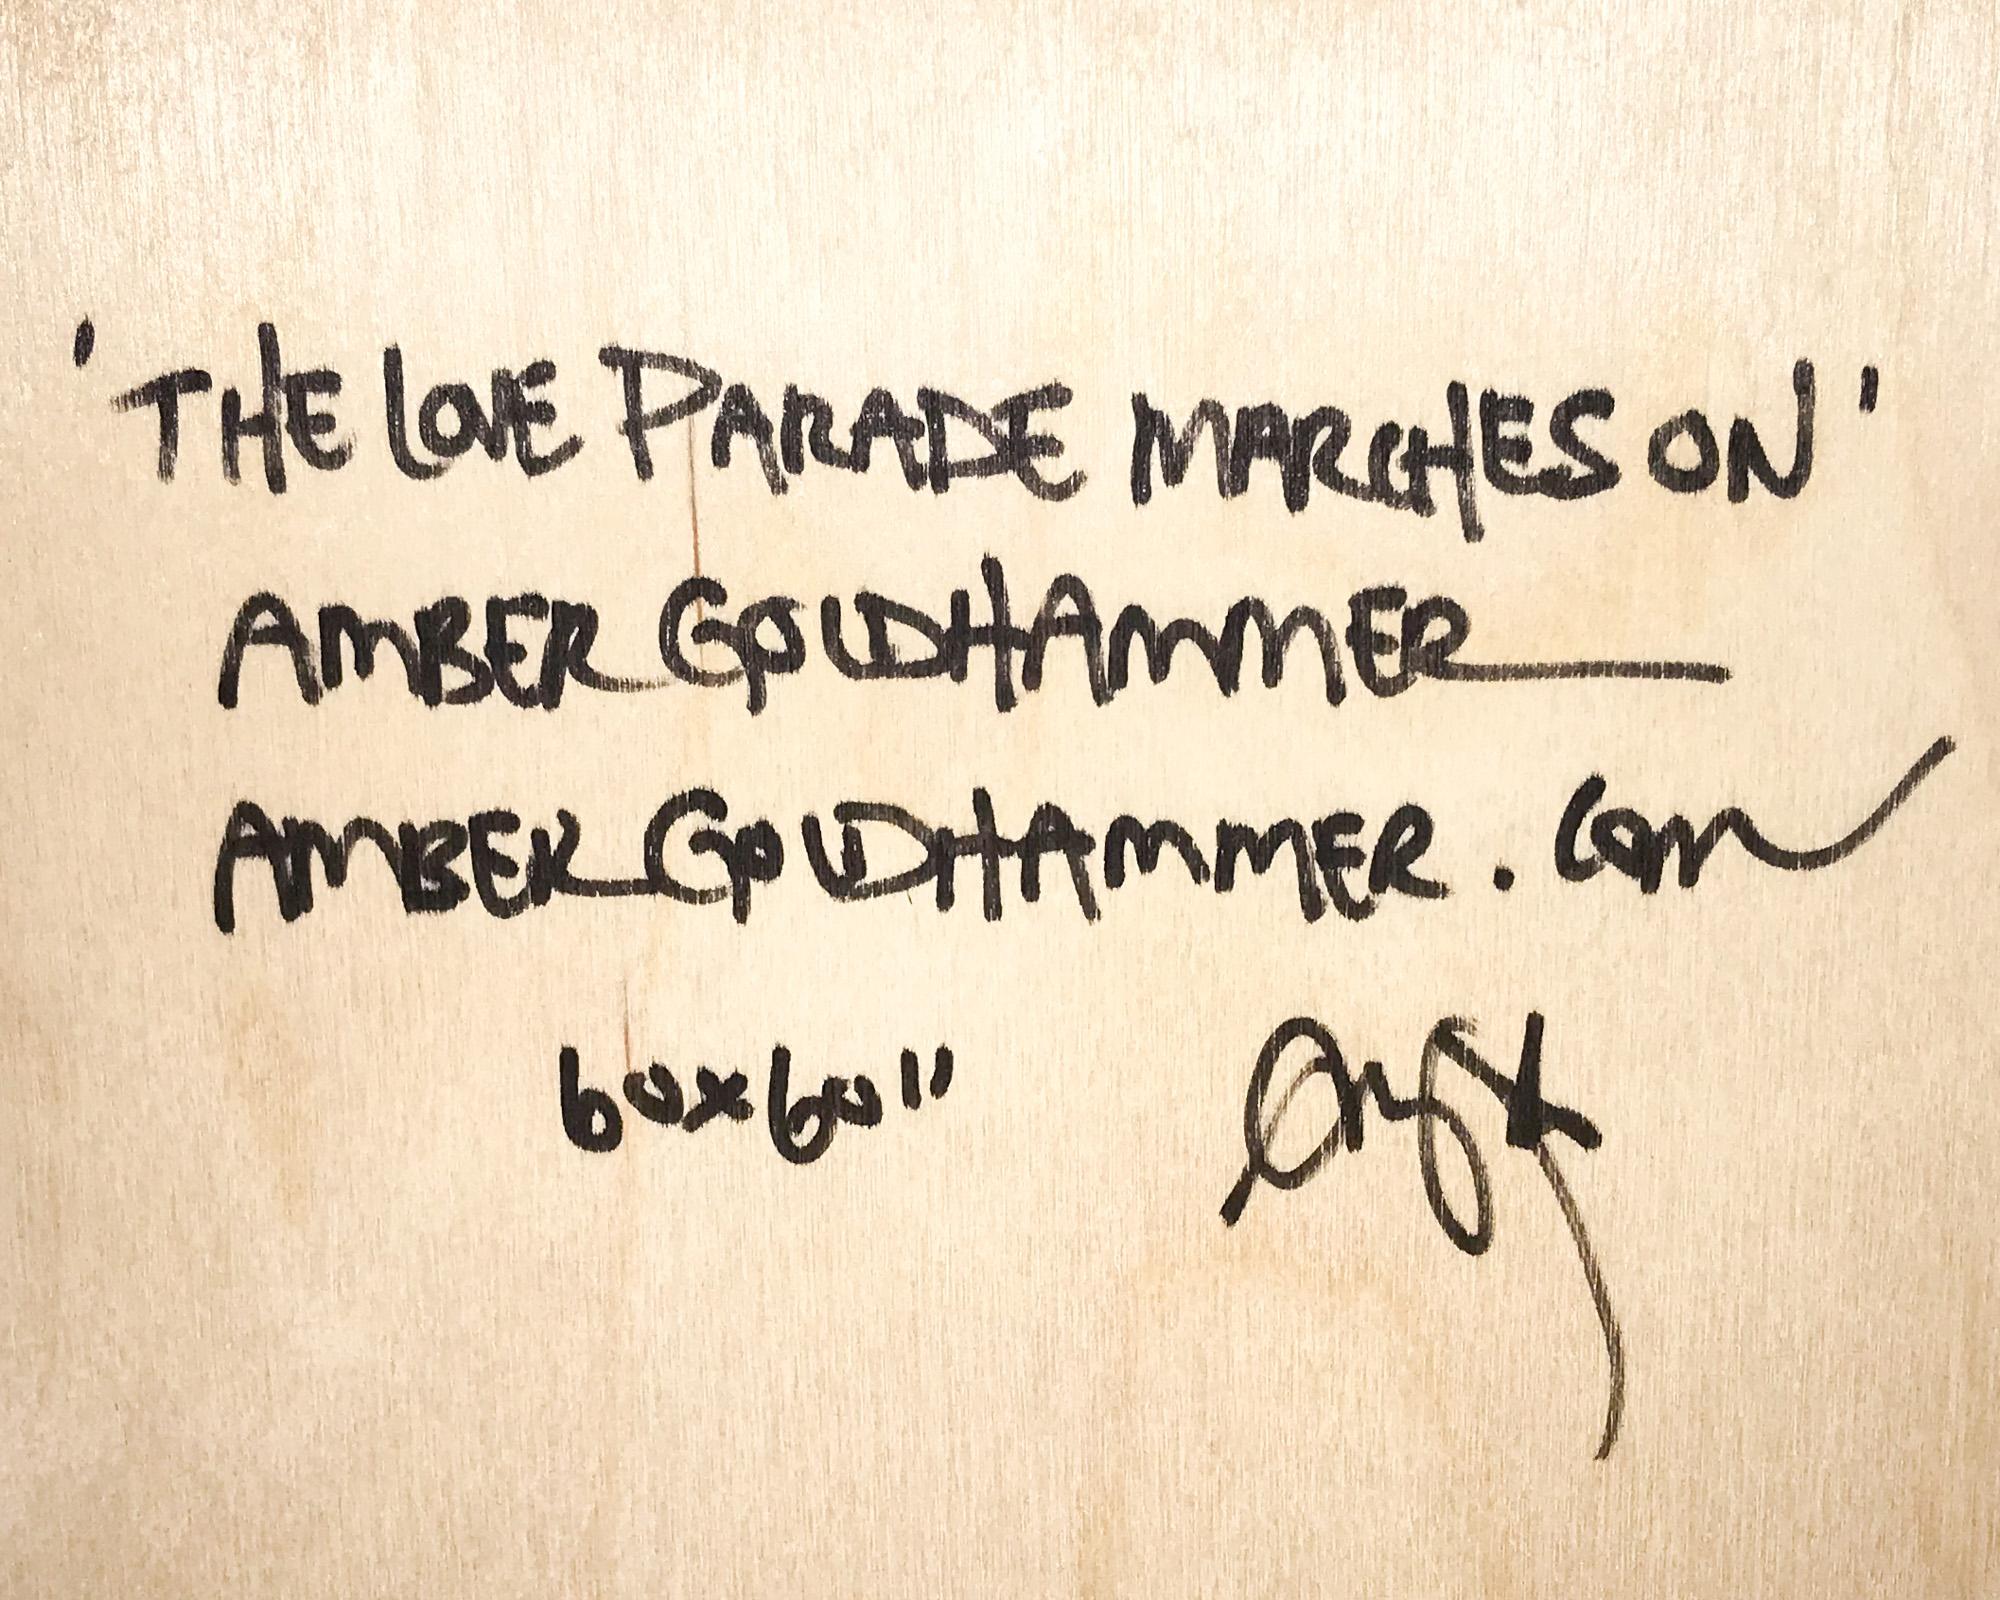 'THE LOVE PARADE MARCHES ON'
AMBER GOLDHAMMER
AMBERGOLDHAMMER.COM
60x60"